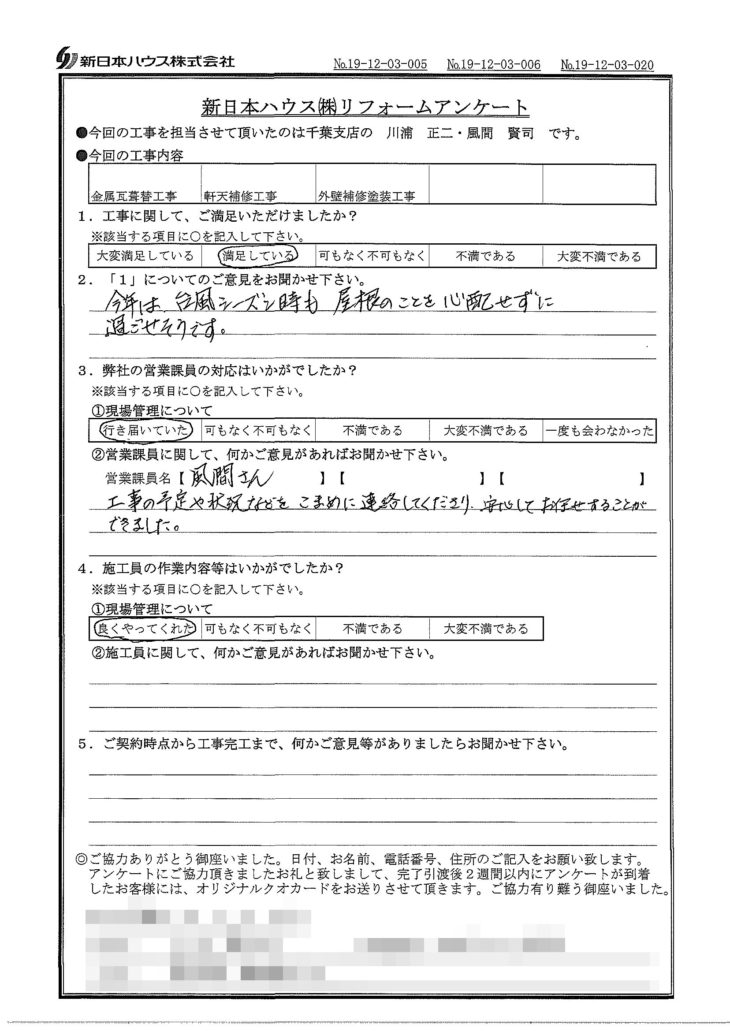 新日本ハウス株式会社 №19-12-03-005 №19-12-03-006 №19-12-03-020
新日本ハウス㈱リフォームアンケート
●今回の工事を担当させて頂いたのは千葉支店の 川浦 正二・風間 賢司 です。
●今回の工事内容
金属瓦葺替工事 軒天補修工事 外壁補修塗装工事
1．工事に関して、ご満足いただけましたか？
※該当する項目に○を記入して下さい。
大変満足している 満足している 可もなく不可もなく 不満である 大変不満である
2．「1」についてのご意見をお聞かせ下さい。
今年は、台風シーズン時も 屋根のことを心配せずに
過ごせそうです。
3．弊社の営業課員の対応はいかがでしたか？
※該当する項目に○を記入して下さい。
①現場管理について
行き届いていた 可もなく不可もなく 不満である 大変不満である 一度も会わなかった
②営業課員に関して、何かご意見があればお聞かせ下さい。
営業課員名【 風間さん 】【 】【 】
工事の予定や状況などを こまめに連絡してくださり、安心して お任せすることが
できました。
4．施工員の作業内容等はいかがでしたか？
※該当する項目に○を記入して下さい。
①現場管理について
良くやってくれた 可もなく不可もなく 不満である 大変不満である
②施工員に関して、何かご意見があればお聞かせ下さい。
5．ご契約時点から工事完工まで、何かご意見等がありましたらお聞かせ下さい。
◎ご協力ありがとう御座いました。日付、お名前、電話番号、住所のご記入をお願い致します。
アンケートにご協力頂きましたお礼と致しまして、完了引渡後2週間以内にアンケートが到着
したお客様には、オリジナルクオカードをお送りさせて頂きます。ご協力有り難う御座いました。